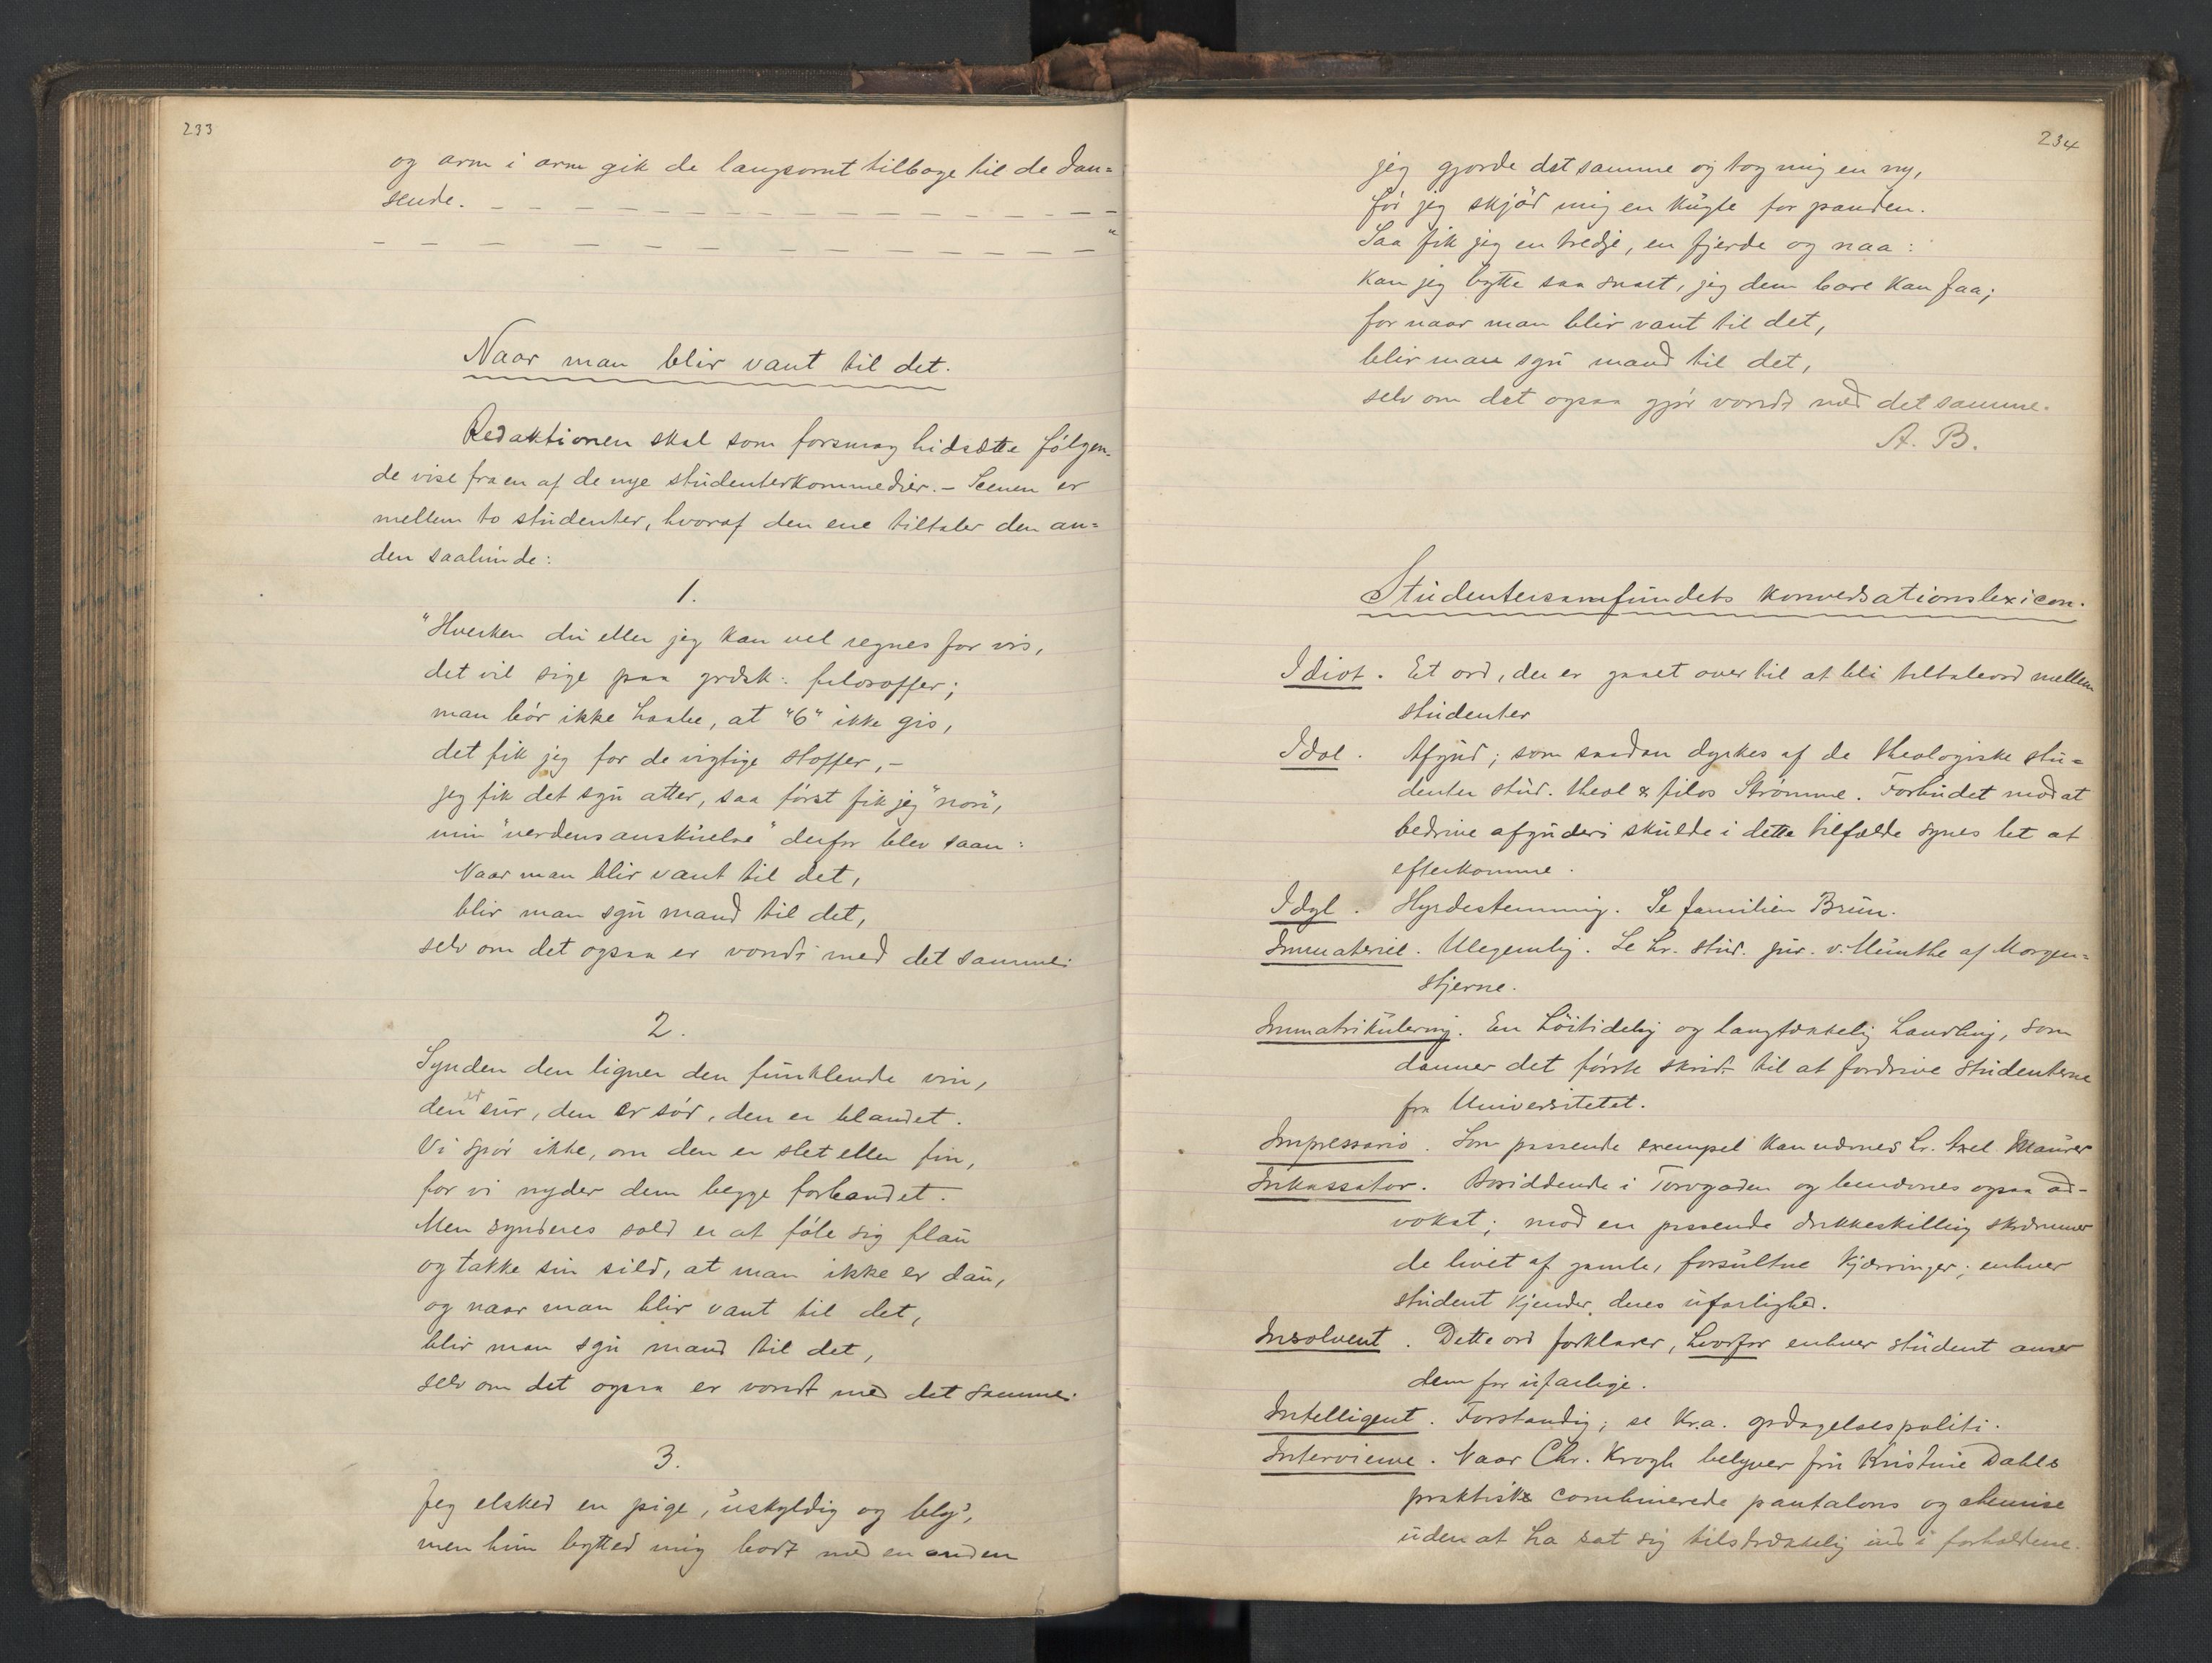 233
og arm i arm gik de langsomt tilbage til de dan=
sende. — — — — — — — — — — — — — — — — —
— — — — — — — — — — — — — "
Naar man blir vant til det.
Redaktionen skal som forsmag hidsætte følgen-
de vise fra en af de nye studenterkommedier. – Scenen er
mellem to studenter, hvoraf den ene tiltaler den an=
den saalunde:
1.
"Hverken du eller jeg kan vel regnes for vis,
det vil sige paa græsk: filosoffer;
man bør ikke haabe, at "6" ikke gis,
det fik jeg for de vigtige stoffer, –
jeg fik det sgu atter, saa først fik jeg "non",
min "verdensanskuelse" derfor blev saan:
Naar man blir vant til det,
blir man sgu mand til det,
selv om det ogsaa er vondt med det samme.
2.
Synden den ligner den funklende vin,
den er sur, den er sød, den er blandet.
Vi spør ikke, om den er slet eller fin,
for vi nyder dem begge forbandet.
Men synderes sold er at føle sig flau
og takke sin sild, at man ikke er dau,
og naar man blir vant til det,
blir man sgu mand til det,
selv om det ogsaa er vondt med det samme.
3.
Jeg elsked en pige, uskyldig og bly,
men hun bytted mig bort med en anden
234
jeg gjorde det samme og tog mig en ny,
før jeg skjød mig en kugle for panden.
Saa fik jeg en tredje, en fjerde og naa:
kan jeg bytte saa snart, jeg dem bare kan faa;
for naar man blir vant til det,
blir man sgu mand til det,
selv om det ogsaa gjør vondt med det samme.
A. B.
Studentersamfundets konversationslexicon.
Idiot. Et ord, der er gaaet over til at bli tiltaleord mellem
studenter
Idol. Afgud; som saadan dyrkes af de theologiske stu=
denter stud. theol & filos Strømme. Forbudet mod at
bedrive afguderi skulde i dette tilfælde synes let at
efterkomme.
Idyl. Hyrdestemning. Se familien Brun.
Immateriel. Ulegemlig. Se hr. stud. jur. v. Munthe af Morgen=
stjerne.
Immatrikulering. En høitidelig og langtrækkelig handling, som
danner det første skridt til at fordrive studenterne
fra Universitetet.
Impressario. Som passende exempel kan nævnes hr. Axel Maurer
Inkassator. i Torvgaden og benævnes ogsaa ad-
vokat; mod en passende drikkeskilling skræmmer
de livet af gamle, forsultne kjærringer; enhver
student kjender deres ufarlighed.
Insolvent. Dette ord forklarer, hvorfor enhver student anser
dem for ufarlige.
Intelligent. Forstandig; se Kr.a. opdagelsespoliti.
Interviewe. Naar Chr. Krogh belyver fru Kristine Dahls
praktiske combinerede pantalons og chemise
uden at ha sat sig tilstrækkelig ind i forholdene.